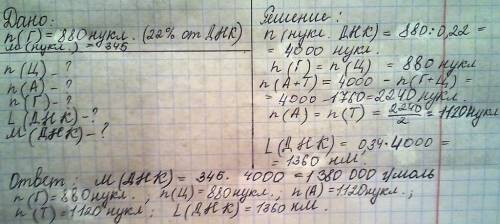 Дано:
n(Г) = 880 нукл. (22% от ДНК)
м(нукл.) = 345
n(Ц) – ?
n(А) – ?
n(Г) – ?
L(ДНК) – ?
М(ДНК) – ?
Решение:
n(нукл. ДНК) = 880 : 0,22 =
= 4000 нукл.
n(Г) = n(Ц) = 880 нукл
n(А+Т) = 4000 – n(Г+Ц) =
= 4000 – 1760 = 2240 нукл.
n(А) = n(Т) = 2240/2 = 1120 нукл
L(ДНК) = 034 · 4000 =
= 1360 нм.
Ответ: М(ДНК) = 345 · 4000 = 1 380 000 г/моль
n(Г) = 880 нукл., n(Ц) = 880 нукл., n(А) = 1120 нукл.;
n(Т) = 1120 нукл; L(ДНК) = 1360 нм.